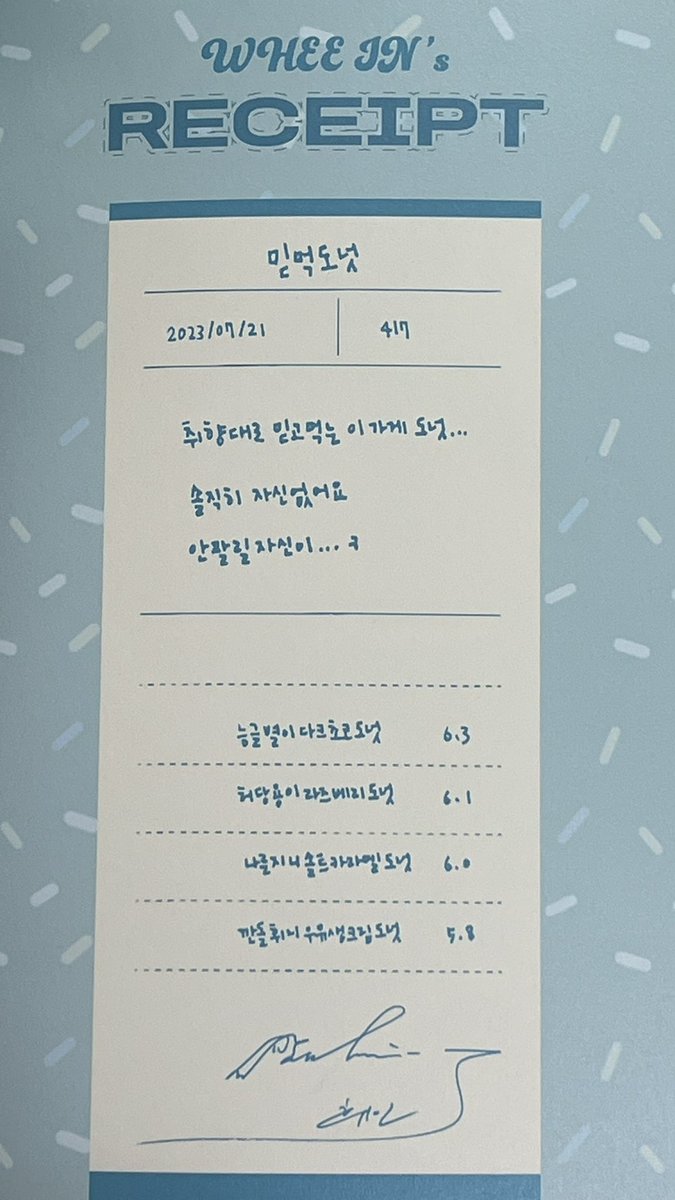 WHEE IN's
RECEIPT
믿먹도넛
2023/07/21 417
취향대로 믿고먹는 이가게 도넛...
솔직히 자신없어요
안팔릴자신이... ㅋ
능글별이다크초코도넛 6.3
허당용이라즈베리도넛 6.1
나른지니솔트카라멜도넛 6.0
깐돌휘니우유생크림도넛 5.8
휘인